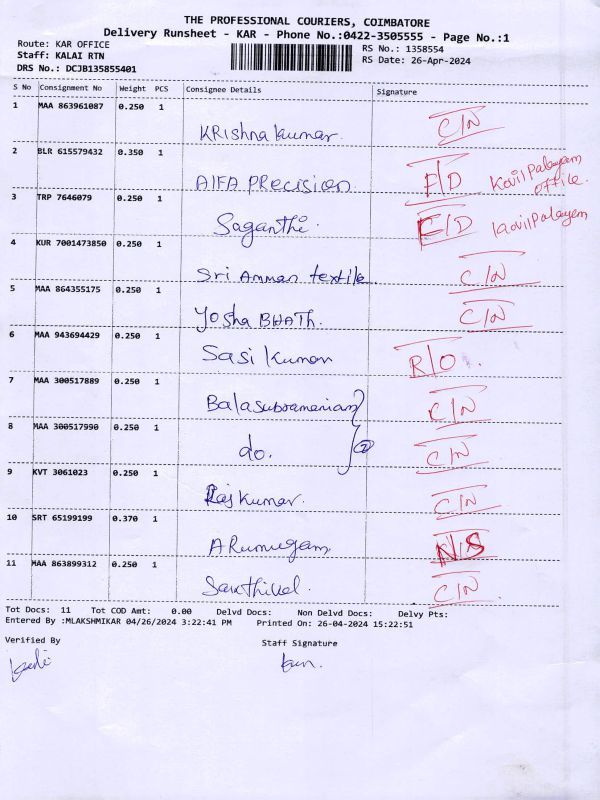 THE PROFESSIONAL COURIERS, COIMBATORE
Delivery Runsheet - KAR - Phone No.:0422-3505555 - Page No.:1
Route: KAR OFFICE
Staff: KALAI RTN
DRS No.: DCJB135855401
RS No.: 1358554
RS Date: 26-Apr-2024
S No Consignment No Weight PCS Consignee Details Signature
1 MAA 863961087 0.250 1 Krishna kumar. C/N
2 BLR 615579432 0.350 1 AIFA Precision F/D Kovilpalayam office.
3 TRP 7646079 0.250 1 Saganthi. F/D kovilpalayem
4 KUR 7001473850 0.250 1 Sri Amman textile C/N
5 MAA 864355175 0.250 1 Yosha BHATH. C/N
6 MAA 943694429 0.250 1 Sasi kumar R/O.
7 MAA 300517889 0.250 1 Balasubramaniam C/N
8 MAA 300517990 0.250 1 do. (2) C/N
9 KVT 3061023 0.250 1 Rajkumar. C/N
10 SRT 65199199 0.370 1 ARumugam N/S
11 MAA 863899312 0.250 1 Sakthivel. C/N
Tot Docs: 11 Tot COD Amt: 0.00 Delvd Docs: Non Delvd Docs: Delvy Pts:
Entered By :MLAKSHMIKAR 04/26/2024 3:22:41 PM Printed On: 26-04-2024 15:22:51
Verified By Staff Signature